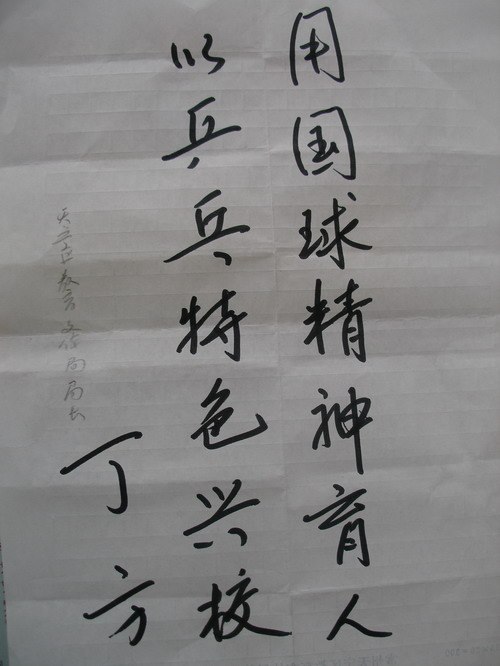 用国球精神育人
以乒乓特色兴校
丁方
教育文体局局长